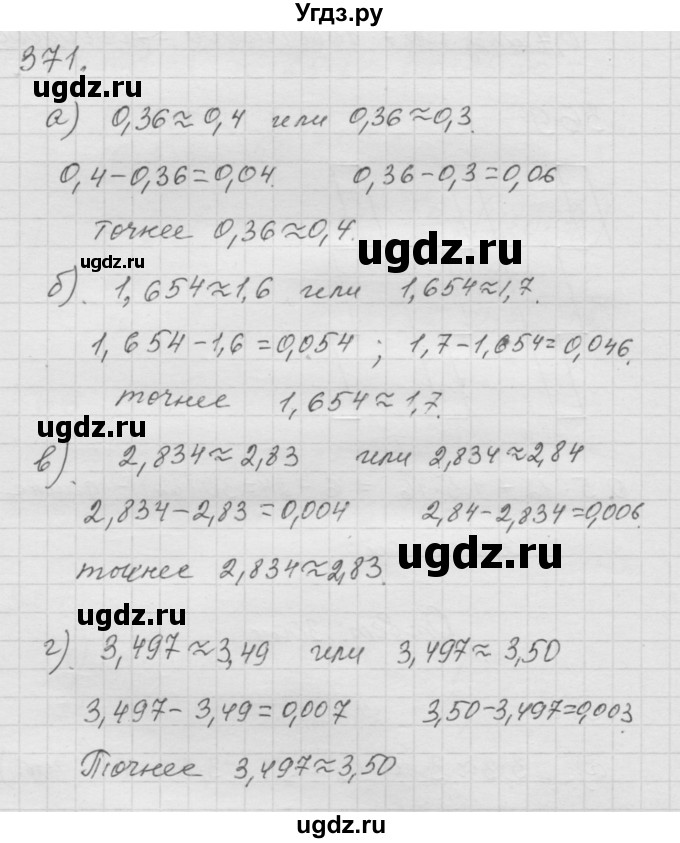 Угдз.ру
371.
ugdz.ru
а) 0,36≈0,4 или 0,36≈0,3.
0,4-0,36=0,04. 0,36-0,3=0,06
точнее 0,36≈0,4.
ugdz.ru
ugdz.ru
б). 1,654≈1,6 или 1,654≈1,7.
1,654-1,6=0,054 ; 1,7-1,654=0,046.
точнее 1,654≈1,7.
ugdz.ru
в). 2,834≈2,83 или 2,834≈2,84
2,834-2,83=0,004 2,84-2,834=0,006.
точнее 2,834≈2,83.
ugdz.ru
ugdz.ru
г). 3,497≈3,49 или 3,497≈3,50
3,497-3,49=0,007 3,50-3,497=0,003
Точнее 3,497≈3,50
ugdz.ru